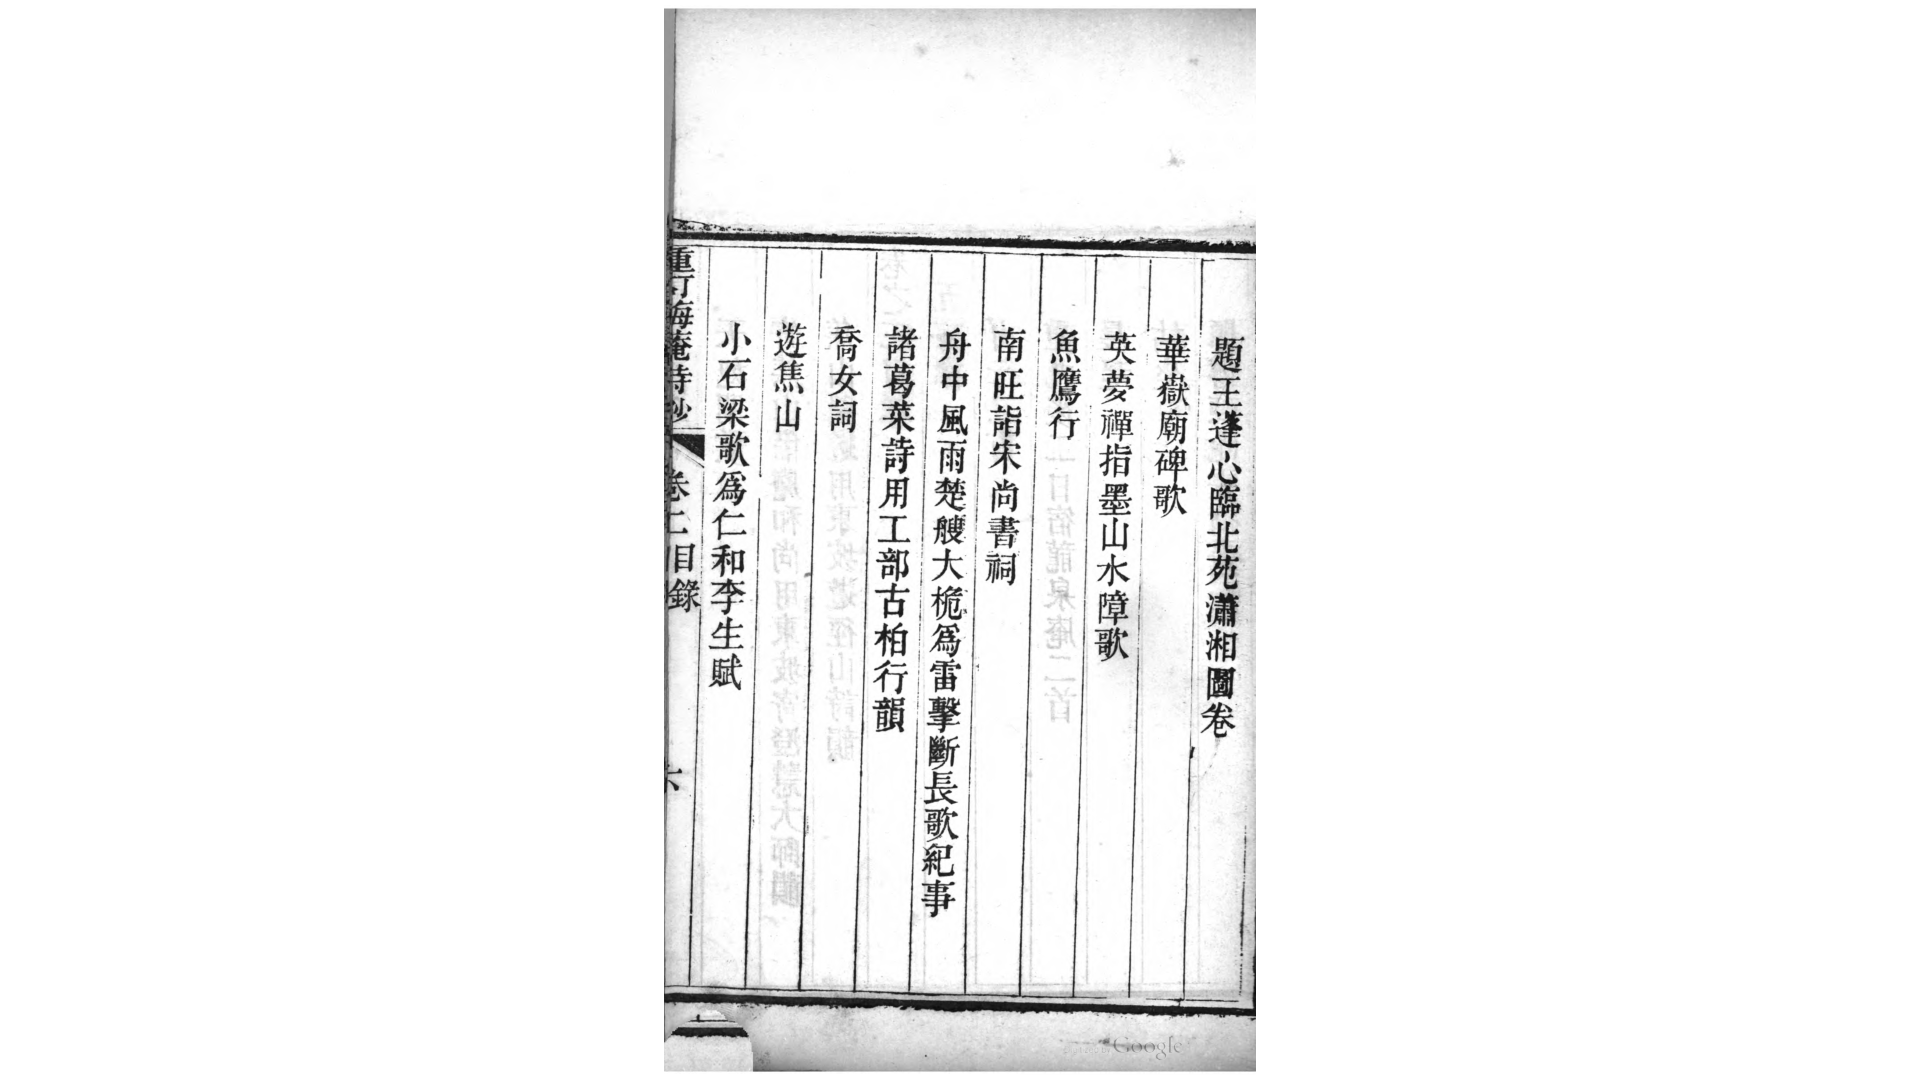 題王蓬心臨北苑瀟湘圖卷
華嶽廟碑歌
英夢禪指墨山水障歌
魚鷹行
南旺詣宋尚書祠
舟中風雨楚艘大桅爲雷擊斷長歌紀事
諸葛菜詩用工部古柏行韻
喬女詞
遊焦山
小石梁歌爲仁和李生賦
重訂悔菴詩鈔
卷二目錄
六
Google